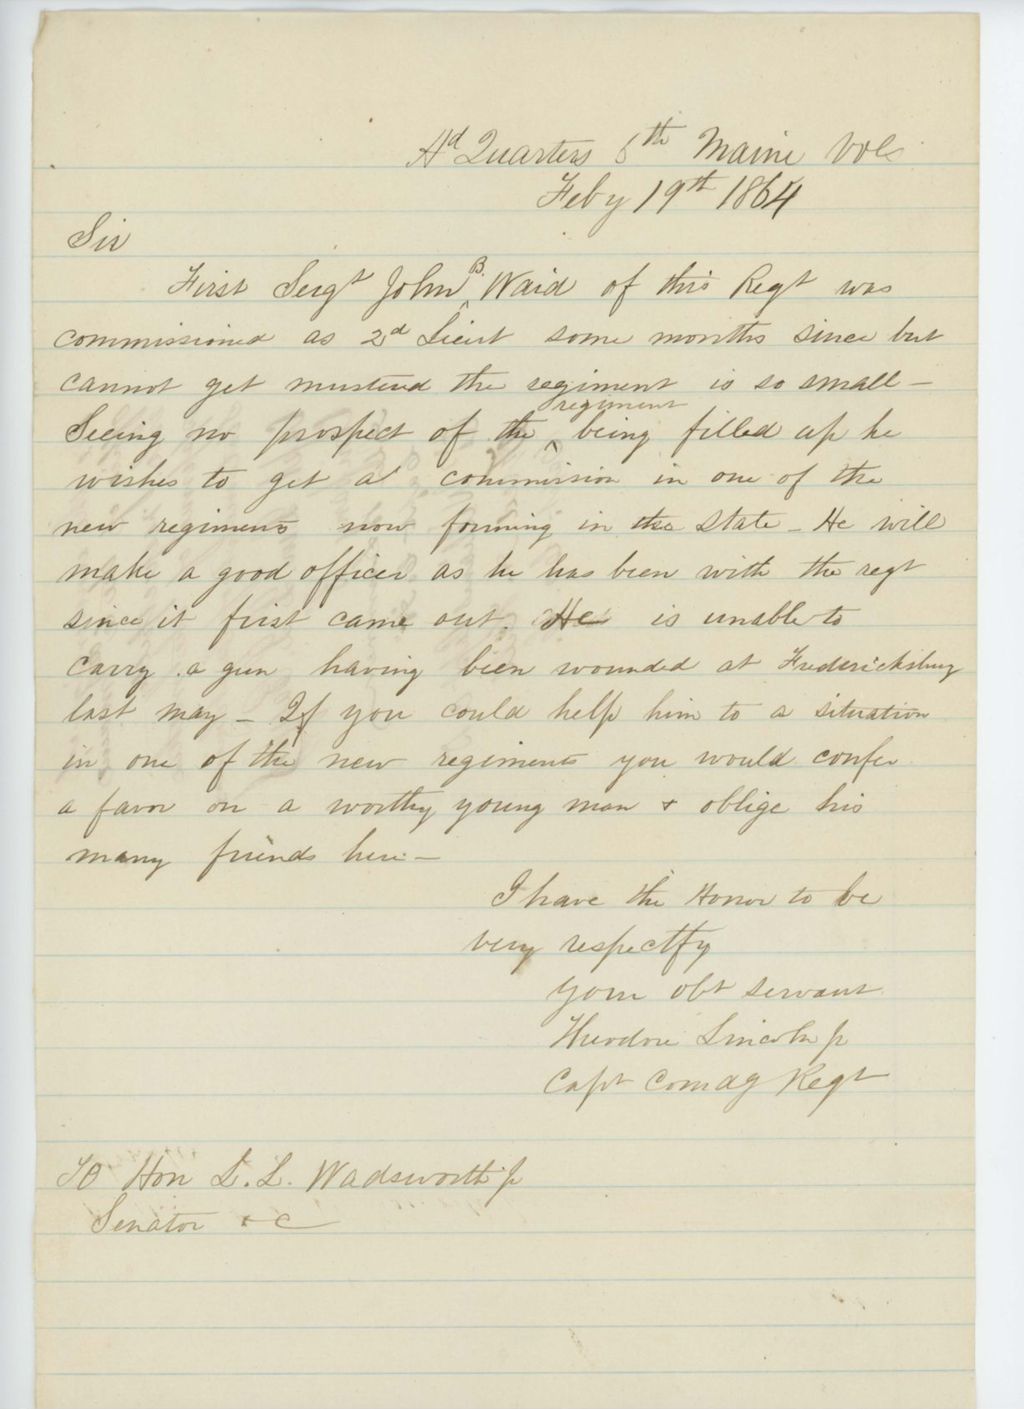 Hd Quarters 6th Maine Vols
Feby 19th 1864
Sir
First Sergt John B. Waid of this Regt was
commissioned as 2d Lieut some months since but
cannot get mustered the regiment is so small —
Seeing no prospect of the regiment being filled up he
wishes to get a commission in one of the
new regiments now forming in the State – He will
make a good officer as he has been with the regt
since it first came out. He is unable to
carry a gun having been wounded at Fredericksburg
last may – If you could help him to a situation
in one of the new regiments you would confer
a favor on a worthy young man & oblige his
many friends here –
I have the Honor to be
very respectfy
your obt servant
Theodore Lincoln jr
Capt Comdg Regt
To Hon L. L. Wadsworth jr
Senator &c